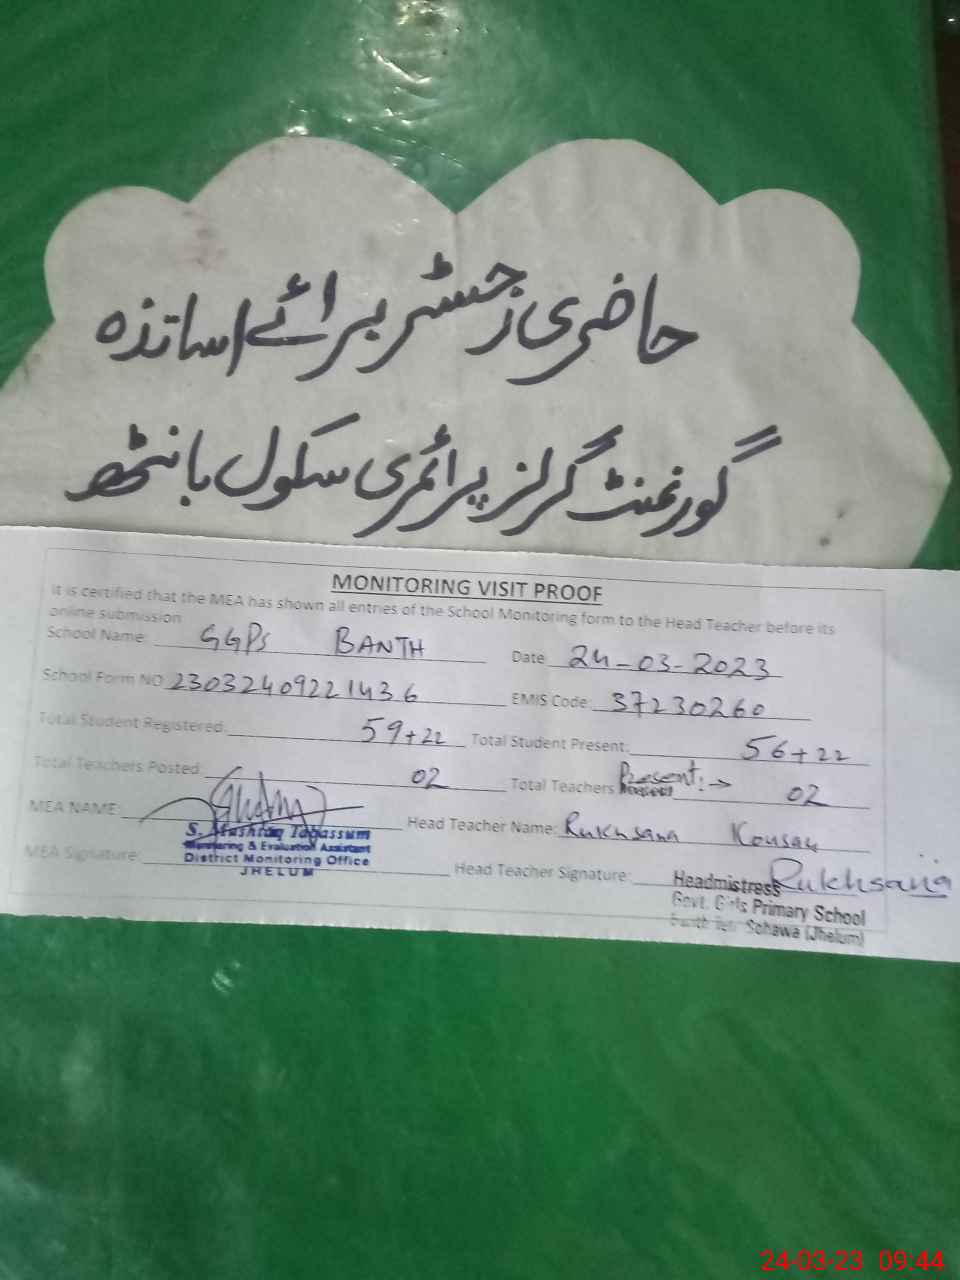 حاضری رجسٹر برائے اساتذہ
گورنمنٹ گرلز پرائمری سکول بانٹھ
MONITORING VISIT PROOF
It is certified that the MEA has shown all entries of the School Monitoring form to the Head Teacher before its
online submission
School Name: GGPS BANTH Date 24-03-2023
School Form NO 23032409221436 EMIS Code: 37230260
Total Student Registered: 59+22 Total Student Present: 56+22
Total Teachers Posted: 02 Total Teachers Present:→ 02
MEA NAME: Head Teacher Name: Rukhsana Kousar
S. Mushtaq Tabassum
Monitoring & Evaluation Assistant
District Monitoring Office
JHELUM
MEA Signature: Head Teacher Signature: Rukhsana
Headmistress
Govt. Girls Primary School
Banth Sohawa (Jhelum)
24-03-23 09:44